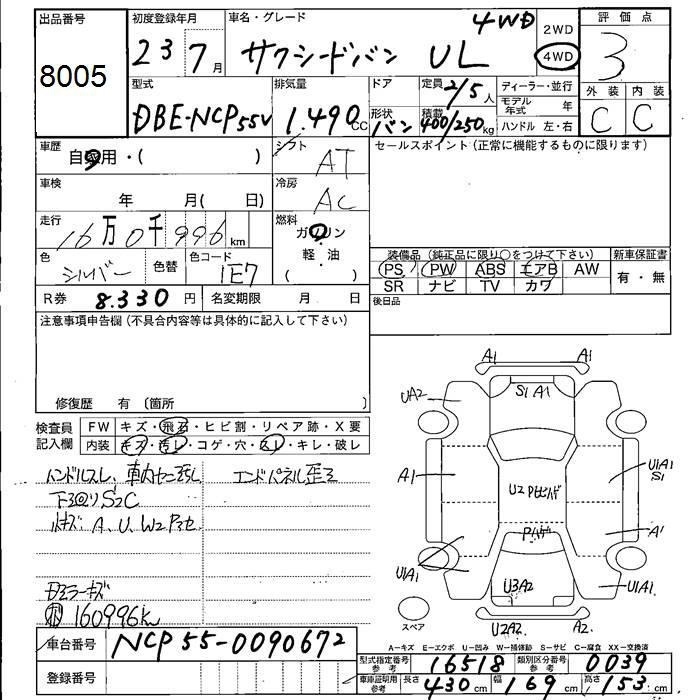 出品番号
8005
初度登録年月
23 7月
車名・グレード
サクシードバン UL 4WD
2WD
4WD
評価点
3
型式
DBE-NCP55V
排気量
1.490cc
ドア
形状
バン
定員
2/5人
積載
400/250kg
ディーラー・並行
モデル年式 年
ハンドル 左・右
外装 内装
C C
車歴
自家用・( )
シフト
AT
車検
年 月( 日)
冷房
AC
走行
16万0千996km
燃料
ガソリン
軽・油
( )
色
シルバー
色替
色コード
1E7
R券 8.330円
名変期限 月 日
セールスポイント(正常に機能するものに限ります)
装備品(純正品に限り○をつけて下さい)
新車保証書
PS PW ABS エアB AW
有・無
SR ナビ TV カワ
後日品
注意事項申告欄(不具合内容等は具体的に記入して下さい)
修復歴 有(箇所 )
検査員記入欄
FW キズ・飛石・ヒビ割・リペア跡・X要
内装 キズ・汚レ・コゲ・穴・スレ・キレ・破レ
ハンドルスレ、
エンドパネル歪ミ
下廻りS2C
A、U、W2
ドアミラーキズ
160996km
車台番号 NCP55-0090672
登録番号
A1 A1
UA2
S1 A1
A1
U1A1
S1
U2
A1
U1A1
U3A2
U1A1
スペア
U2A2 A2
A−キズ E−エクボ U−凹み W−補修跡 S−サビ C−腐食 XX−交換済
型式指定番号 参考 16518
類別区分番号 参考 0039
車庫証明用 参考
長さ 430cm 幅 169cm 高さ 153cm